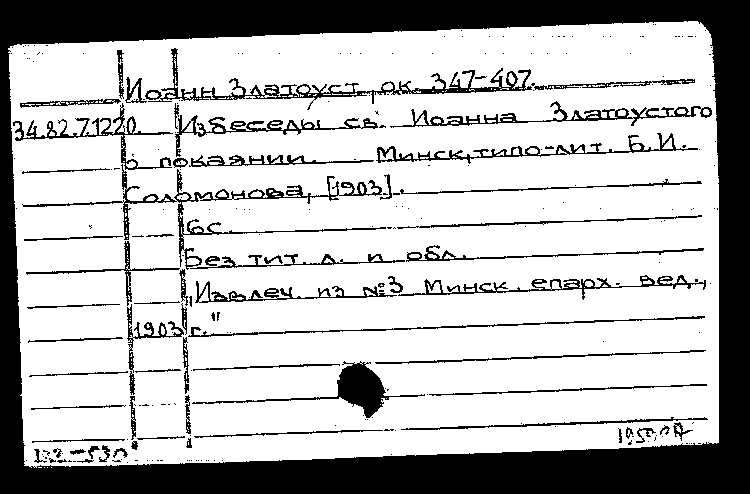 Иоанн Златоуст, ок. 347-407.
34.82.7.1220. Из беседы св. Иоанна Златоустого
о покаянии. Минск, типо-лит. Б.И.
Соломонова, [1903].
6с.
Без тит. л. и обл.
„Извлеч. из №3 Минск. епарх. вед.,
1903 г."